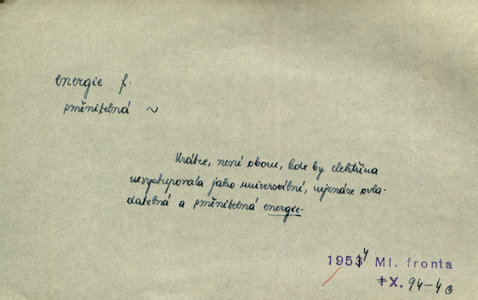 energie f.
směnitebná ~
Krátce, není oboru, kde by elektřina
nevystupovala jako universální, nejsnáze ovla-
datelná a směnitebná energie.
1954 Ml. fronta
X. 94-4